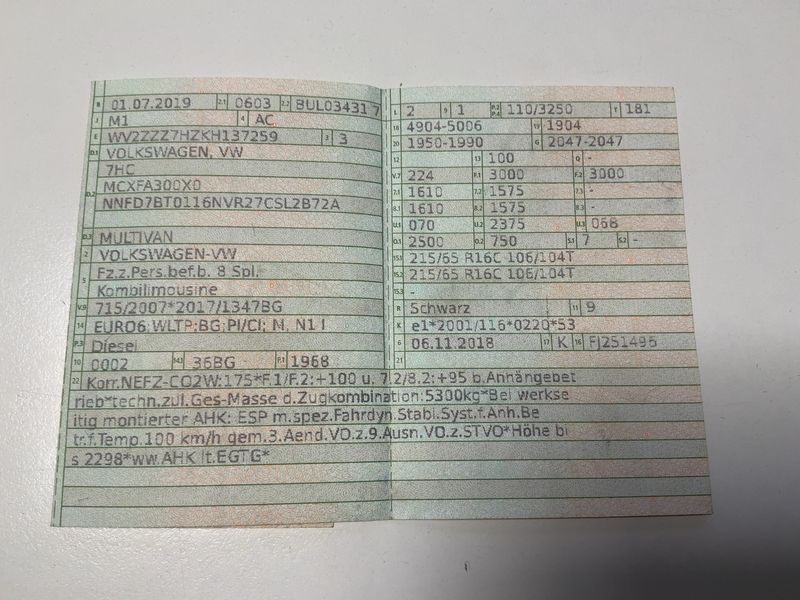 B 01.07.2019 2.1 0603 2.2 BUL03431 7
J M1 4 AC
E WV2ZZZ7HZKH137259 3 3
D.1 VOLKSWAGEN, VW
7HC
D.2 MCXFA300X0
NNFD7BT0116NVR27CSL2B72A
D.3 MULTIVAN
2 VOLKSWAGEN-VW
5 Fz.z.Pers.bef.b. 8 Spl.
Kombilimousine
V.9 715/2007*2017/1347BG
14 EURO6;WLTP;BG;PI/CI; M, N1 I
P.3 Diesel
10 0002 14.1 36BG P.1 1968
L 2 9 1 P.2 P.4 110/3250 T 181
18 4904-5006 19 1904
20 1950-1990 G 2047-2047
12 13 100 Q -
V.7 224 F.1 3000 F.2 3000
7.1 1610 7.2 1575 7.3 -
8.1 1610 8.2 1575 8.3 -
U.1 070 U.2 2375 U.3 068
O.1 2500 O.2 750 S.1 7 S.2 -
15.1 215/65 R16C 106/104T
15.2 215/65 R16C 106/104T
15.3 -
R Schwarz 11 9
K e1*2001/116*0220*53
6 06.11.2018 17 K 16 FJ251495
21
22 Korr.NEFZ-CO2W:175*F.1/F.2:+100 u. 7.2/8.2:+95 b.Anhängebet
rieb*techn.zul.Ges-Masse d.Zugkombination:5300kg*Bei werkse
itig montierter AHK: ESP m.spez.Fahrdyn.Stabi.Syst.f.Anh.Be
tr.f.Temp.100 km/h gem.3.Aend.VO.z.9.Ausn.VO.z.STVO*Höhe bi
s 2298*ww.AHK lt.EGTG*